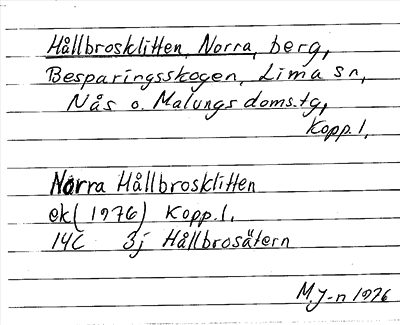 Hållbrosklitten, Norra, berg,
Besparingsskogen, Lima sn,
Nås o. Malungs doms.tg,
Kopp.l.
Norra Hållbrosklitten
ek (1976) Kopp.l.
14C 3j Hållbrosätern
M.J-n 1976